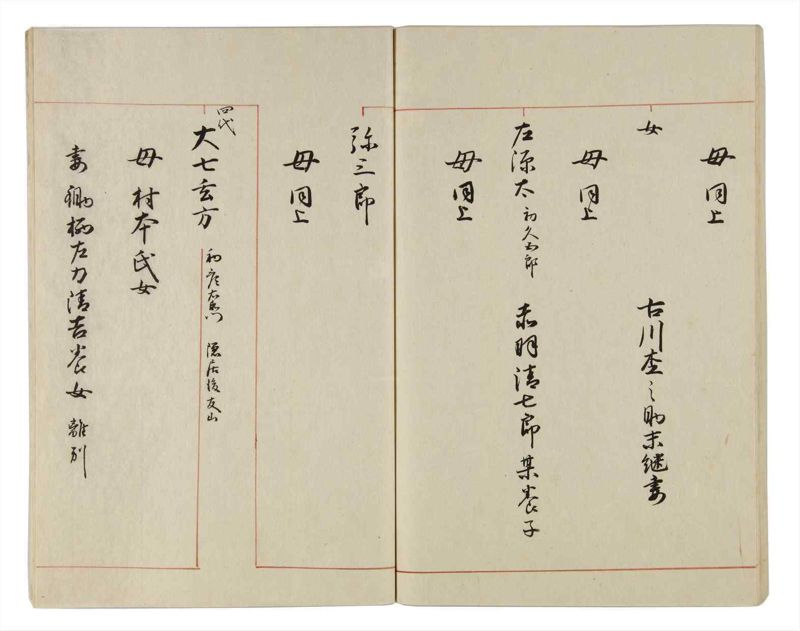 母同上
女
古川杢之助末継妻
母同上
左源太 初久五郎
赤羽清七郎某養子
母同上
弥三郎
母同上
四代
大七玄方
初彦右衛門 隠居後友山
母村本氏女
妻 左力清吉養女 離別